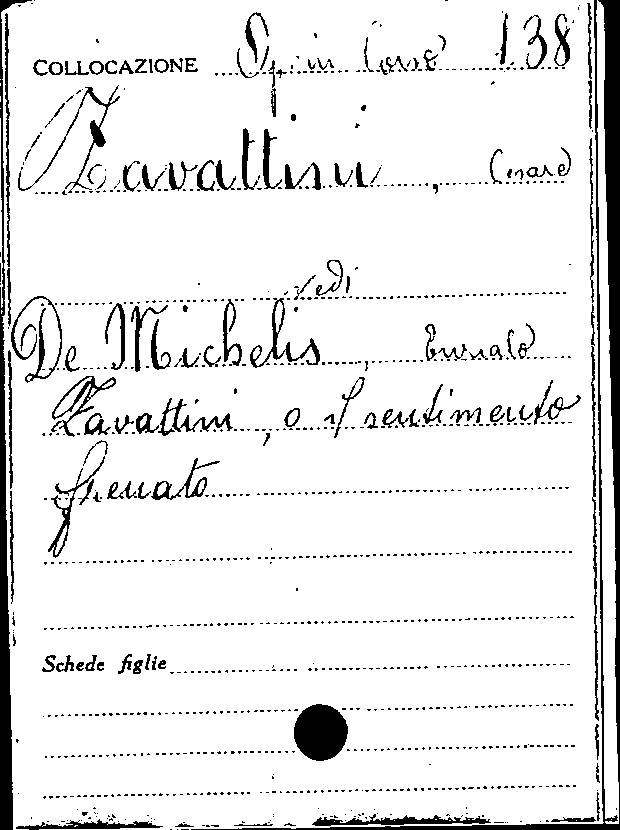 COLLOCAZIONE Op. in Corso 138
Zavattini, Cesare
vedi
De Michelis, Eurialo
Zavattini, o il sentimento
frenato
Schede figlie